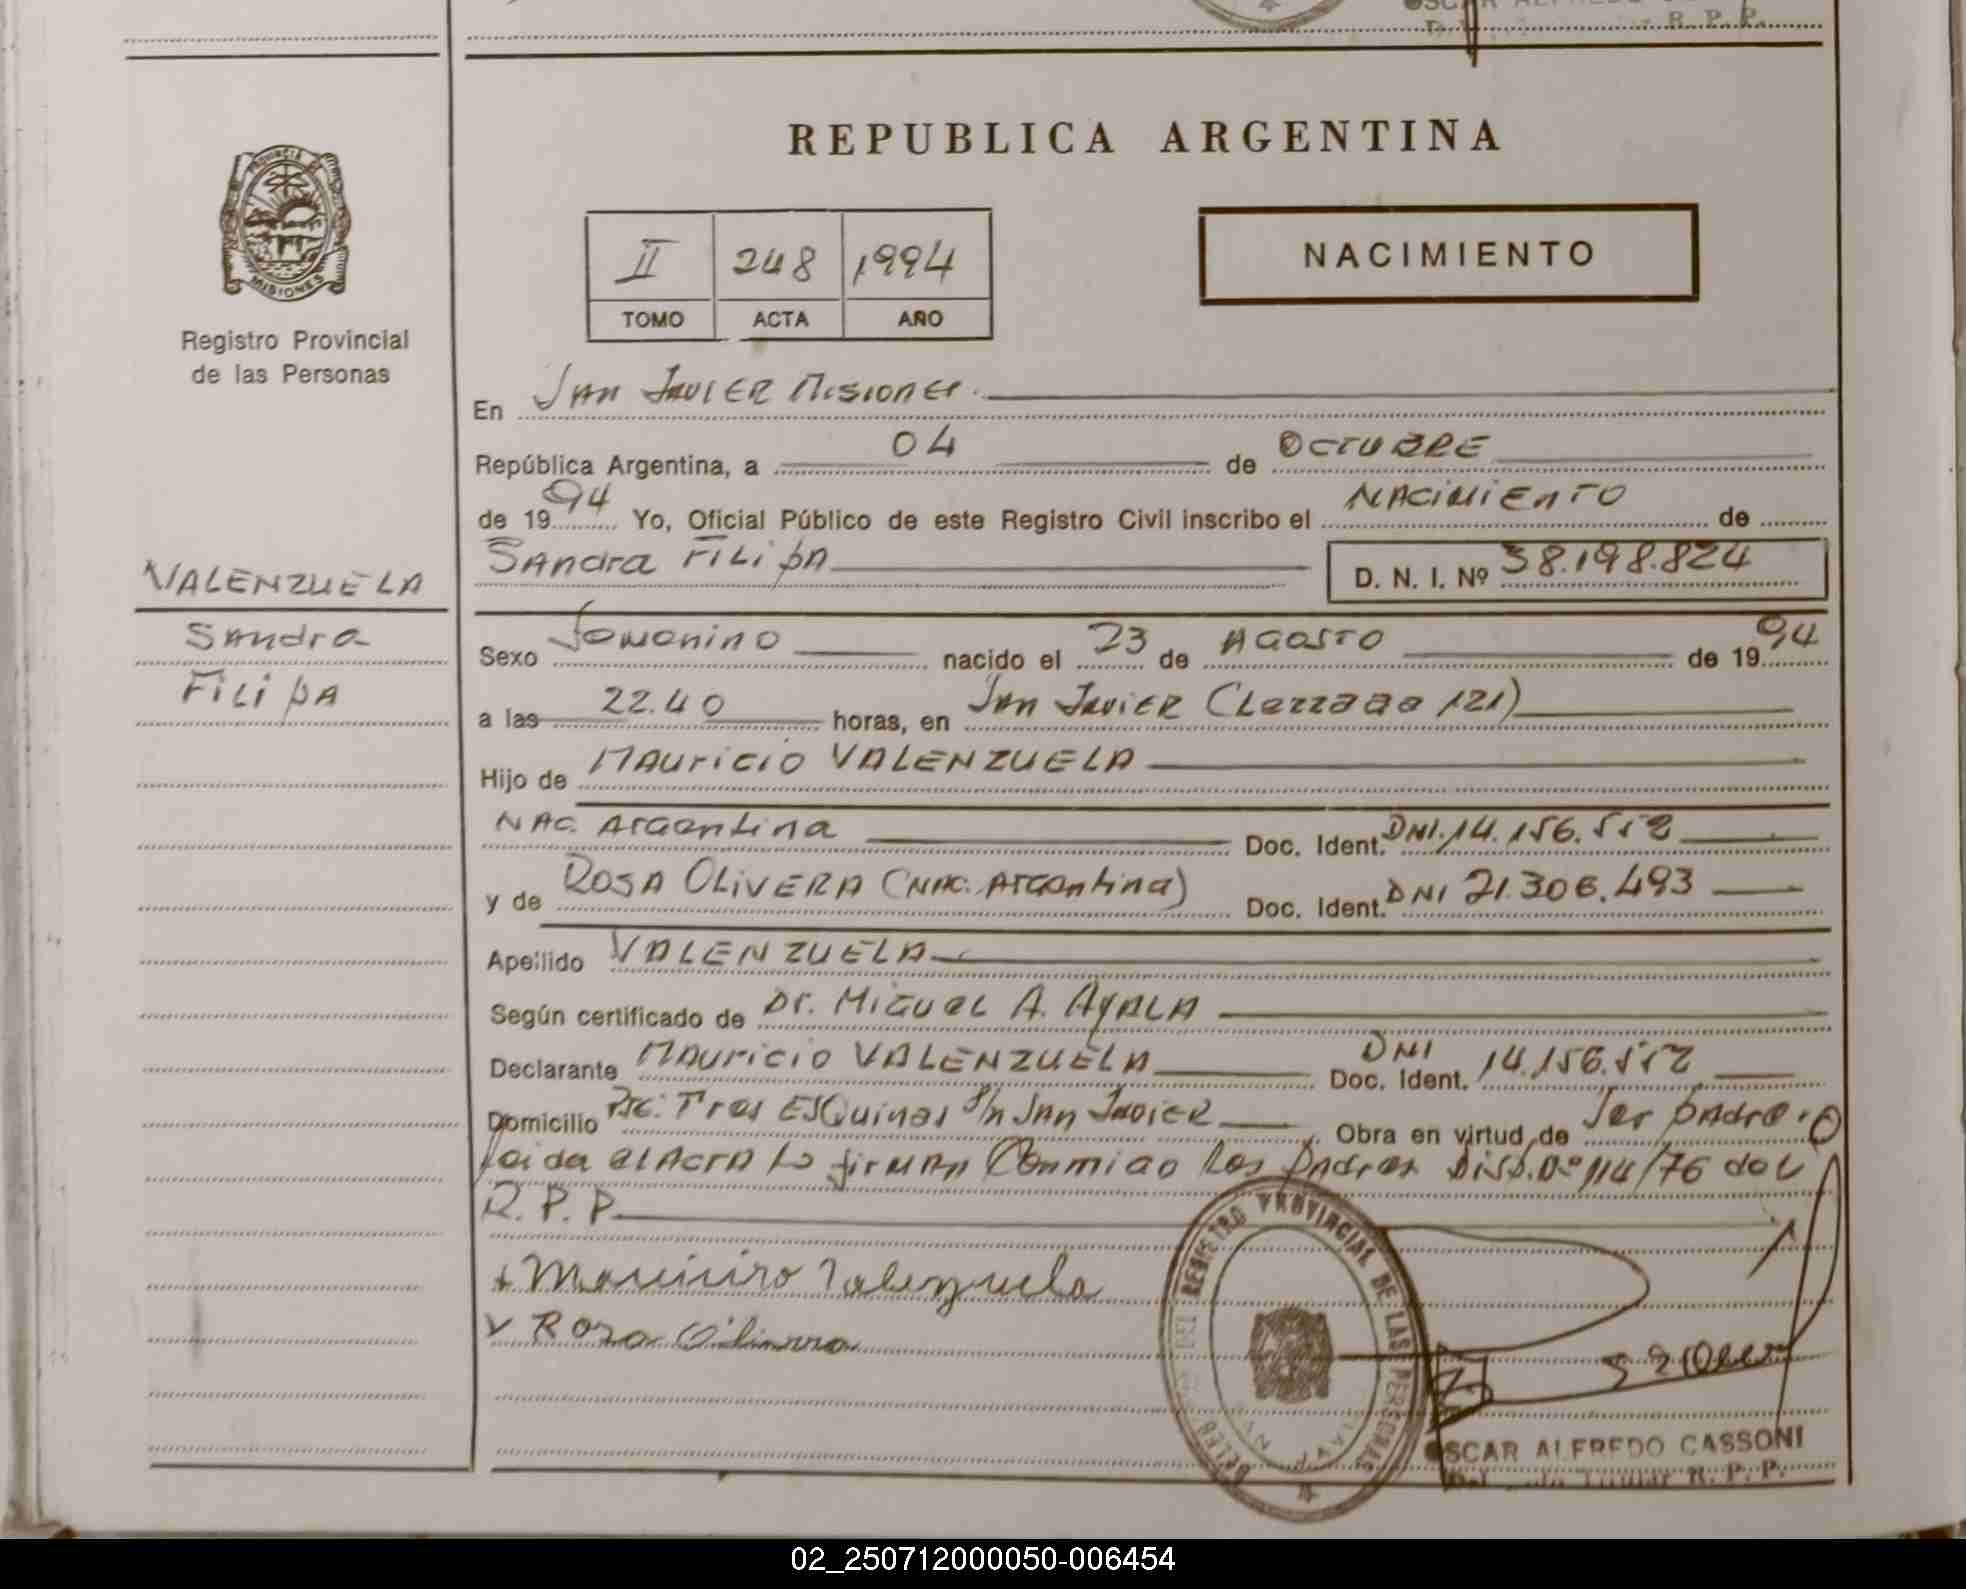 R. P. P.
REPUBLICA ARGENTINA
PROVINCIA DE
MISIONES
Registro Provincial
de las Personas
II 248 1994
TOMO ACTA AÑO
NACIMIENTO
En SAN JAVIER MISIONES.
República Argentina, a 04 de OCTUBRE
de 1994 Yo, Oficial Público de este Registro Civil inscribo el NACIMIENTO de
Sandra FILIPA D. N. I. Nº 38.198.824
VALENZUELA
Sandra
FILIPA
Sexo Femenino nacido el 23 de AGOSTO de 1994
a las 22.40 horas, en San Javier (Lezzaga 121)
Hijo de Mauricio VALENZUELA
NAC. Argentina Doc. Ident. DNI. 14.156.552
y de ROSA OLIVERA (NAC. Argentina) Doc. Ident. DNI 21.306.493
Apellido VALENZUELA
Según certificado de Dr. MIGUEL A. AYALA
Declarante Mauricio VALENZUELA Doc. Ident. DNI 14.156.552
Domicilio Pje: Tres ESQuinas S/n San Javier Obra en virtud de Ser padre.
Leida el Acta la firman Conmigo Los Padres Disp. nº 114/76 del
R. P. P.
x Mauricio Valenzuela
x Rosa Olivera
DELEG DEL REGISTRO PROVINCIAL DE LAS PERSONAS
SAN JAVIER
OSCAR ALFREDO CASSONI
Titular R. P. P.
02_250712000050-006454